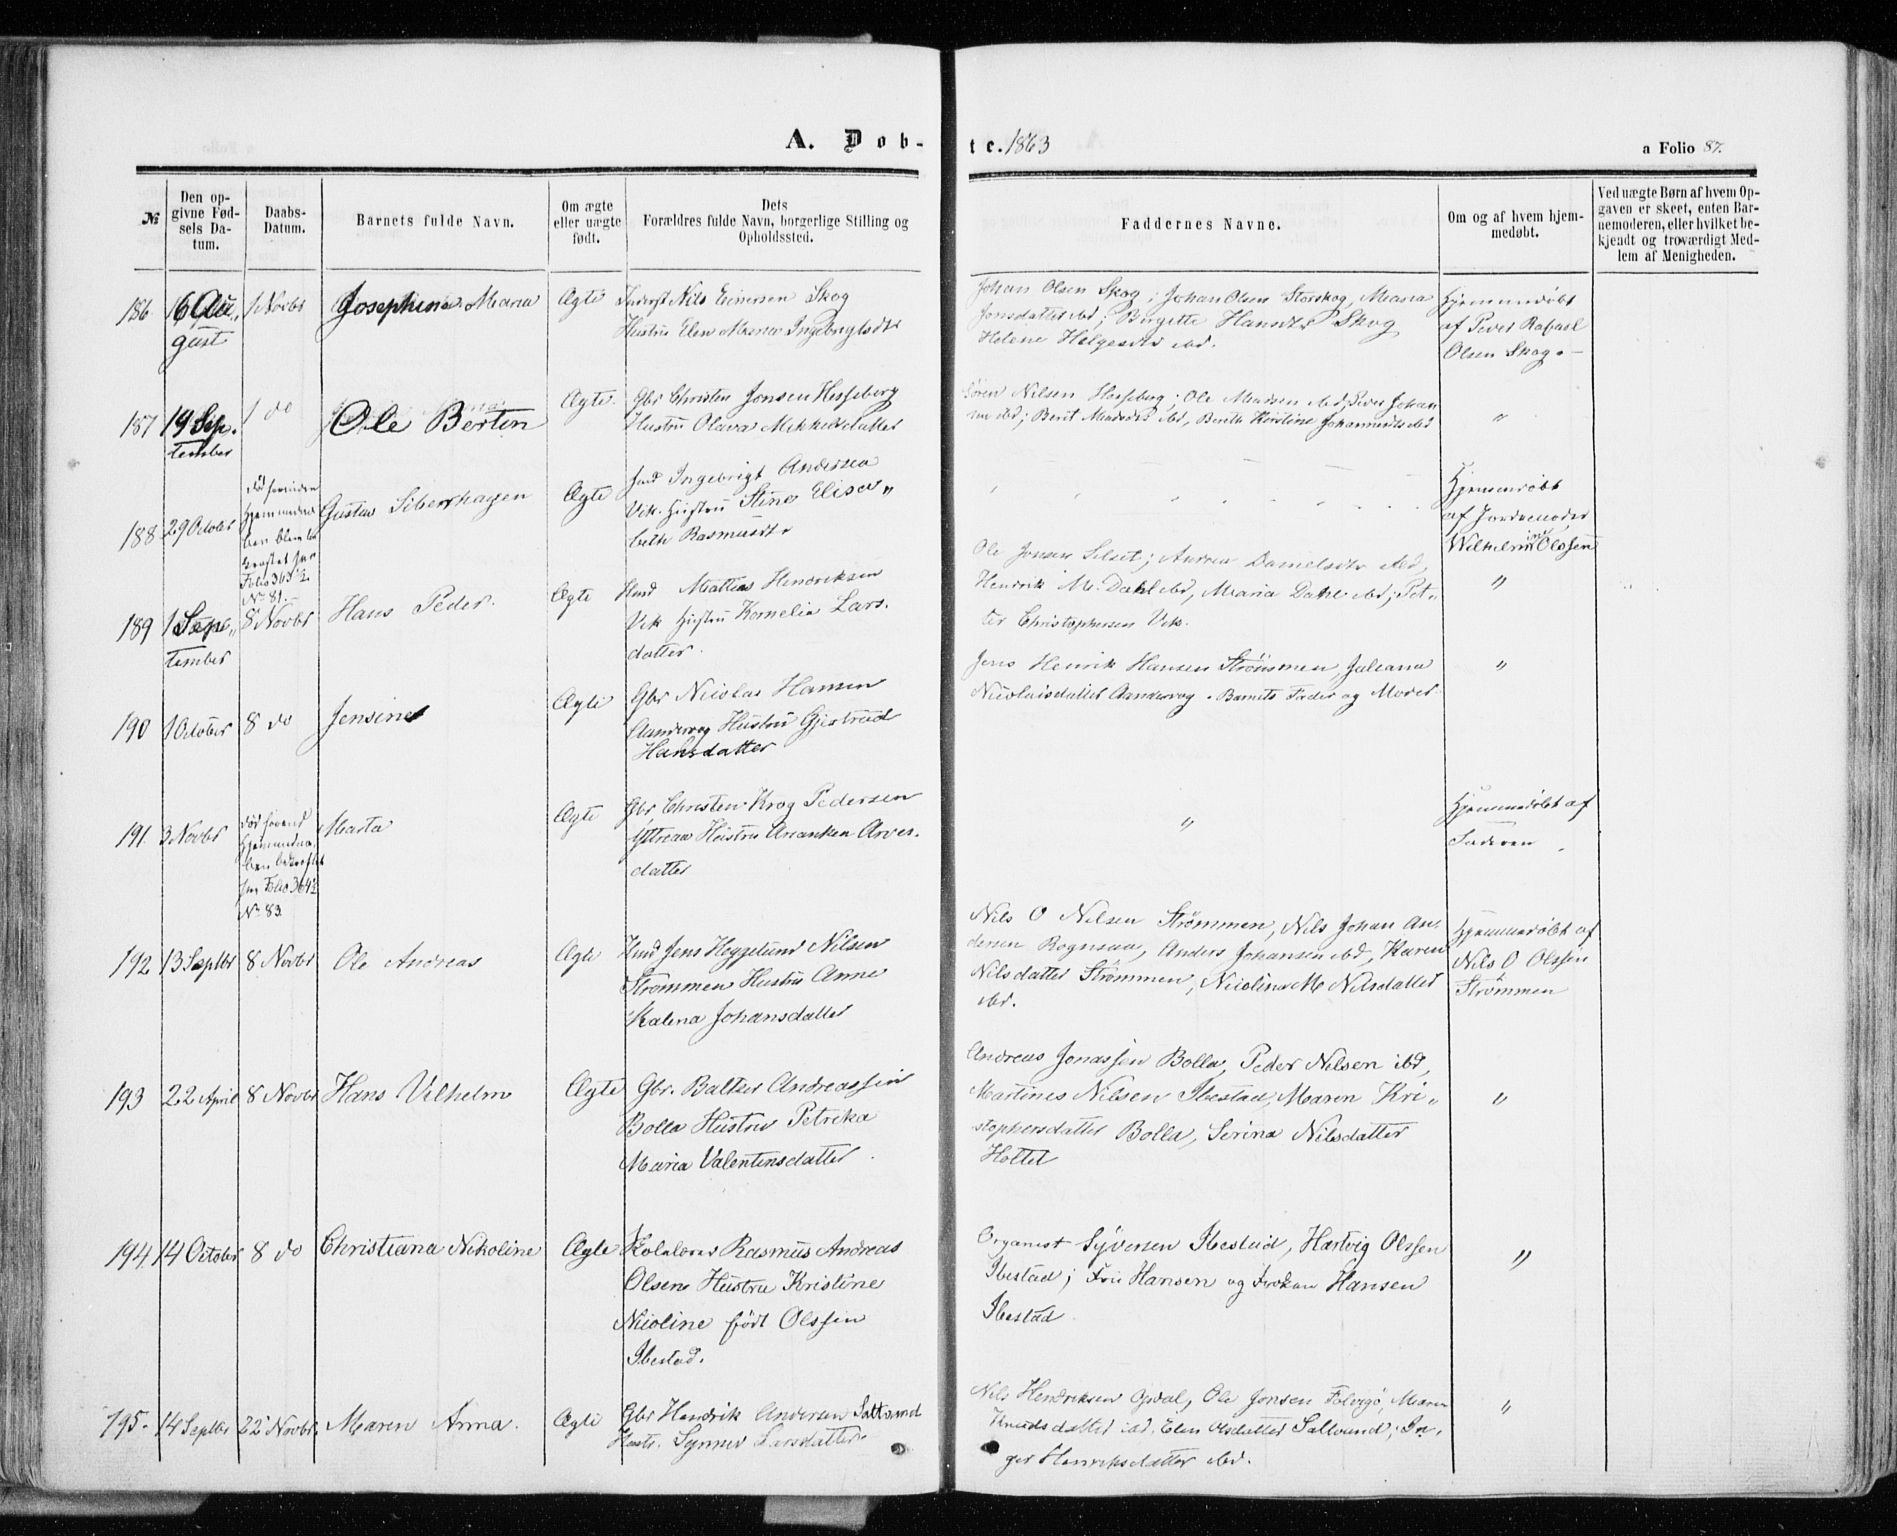 A. Dob-
te. 1863
a Folio 87.
№
Den op-
givne Fød-
sels Da-
tum.
Daabs-
Datum.
Barnets fulde Navn.
Om ægte
eller uægte
født.
Dets
Forældres fulde Navn, borgerlige Stilling og
Opholdssted.
Faddernes Navne.
Om og af hvem hjem-
medøbt.
Ved uægte Børn af hvem Op-
gaven er skeet, enten Bar-
nemoderen, eller hvilket be-
kjendt og troværdigt Med-
lem af Menigheden.
186
16 Au„
gust
1 Novbr
Josephine Maria
Ægte
Inderst Nils Skog
Hustru Elen
Johan Olsen Skog; Johan Olsen Storskog, Maria
Jonsdatter ibd; Birgitte Hansdtr Skog
Helene Helgesdtr ibd.
Hjemmedøbt
af Peder Rafael
Olsen Skog.
187
19 Sep.
tember
1 do
Ole Bertin
Ægte.
Gbr Christen Jonsen Hesseberg
Hustru Olava Mikkelsdatter
Søren Nilsen Hesseberg; Ole Madsen ibd; Peder Johan
sen ibd; Berit Madsdtr ibd, Berith Kirstine Johannesdtr ibd
"
188
29 Octobr
død forinden
Hjemmedaa
ben blev be
kræftet see
Folio 363½
No 81.
Gustav Siberhagen
Ægte
Ind Ingebrigt Andersen
Vik. Hustru Stine Elisa„
beth Rasmusdtr
Hjemmedøbt
af Jordemoder
Wilhelmine Olssen
189
1 Sep„
tember
8 Novbr
Hans Peder.
Ægte
Hmd Mathias Hendriksen
Vik Hustru Kornelia Lars.
datter.
Ole Jonsen Selset; Andrea Danielsdtr ibd,
Hendrik M. Dahl ibd, Maria Dahl ibd; Pet„
ter Christophersen Vik.
"
190
1 October
8 do
Jensine
Ægte
Gbr Nicolai Hansen
Aandervag Hustru Gjertrud
Hansdatter
Jens Henrik Hansen Strömmen, Juliana
Nicolaisdatter Aandervag. Barnets Fader og Moder
"
191
3 Novbr
død forend
Hjemmedaa
ben bekreftet
see Folio 364½
No 83
Marta
Ægte
Gbr Christen Krog Pedersen
Yttreaa Hustru Arver.
datter
"
Hjemmedøbt af
Faderen
192
13 Septbr
8 Novbr
Ole Andreas
Ægte
Hmd Jens Heggelund Nilsen
Strömmen Hustru Anne
Kalena Johansdatter
Nils O Nilsen Strömmen, Nils Johan An-
dersen Rognsaa, Anders Johansen ibd, Karen
Nilsdatter Strömmen, Nicoline M Nilsdatter
ibd.
Hjemmedøbt af
Nils O Olssen
Strömmen
193
22 April
8 Novbr
Hans Vilhelm
Ægte
Gbr. Baltser Andreassen
Bolla Hustru Petrika
Maria Valentinsdatter.
Andreas Jonassen Bolla, Peder Nilsen ibd,
Martines Nilsen Ibestad, Maren Kri„
stophersdatter Bolla, Serina Nilsdatter
Holtet
"
194
14 October
8 do
Christiana Nikoline
Ægte
Rasmus Andreas
Olsen Hustru Kristine
Nicoline født Olssen
Ibestad.
Organist Syversen Ibestad, Hartvig Olssen
Ibestad; Fru Hansen og Frøken Hansen
Ibestad
"
195.
14 Septbr
22 Novbr.
Maren Anna.
Ægte
Gbr Hendrik Andersen Saltvand
Hustr. Synnev Larsdatter.
Nils Hendriksen Opdal, Ole Jonsen Folvigø, Maren
Knudsdatter ibd. Elen Olsdatter Saltvand; In„
ger Henriksdatter ibd.
"